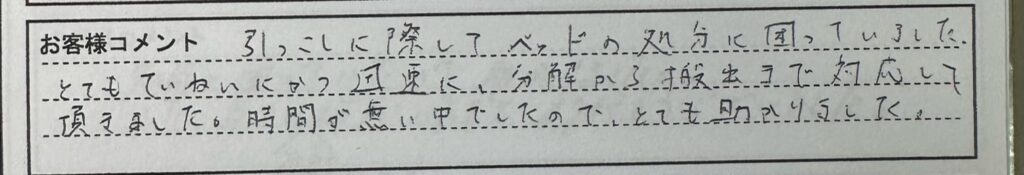 お客様コメント 引っこしに際して ベッドの処分に困っていました。
とてもていねいにかつ迅速に、分解から搬出まで対応して
頂きました。時間が無い中でしたので、とても助かりました。